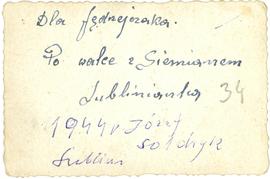 Dla Jędrzejczaka.
Po walce z Siemianem
Lublinianka 34
1944 r Józef
Sołdryk
Lublin